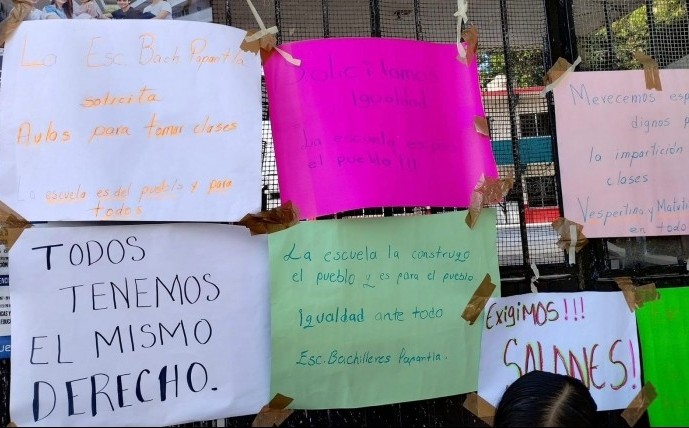 La Esc. Bach Papantla
solicita
Aulas para tomar clases
La escuela es del pueblo y para
todos
Solicitamos
Igualdad
La escuela es
el pueblo !!!
Merecemos esp
dignos p
la impartición
clases
Vespertino y Matuti
en todo
TODOS
TENEMOS
EL MISMO
DERECHO.
La escuela la construyo
el pueblo y es para el pueblo
Igualdad ante todo
Esc. Bachilleres Papantla.
Exigimos!!!
SALONES!